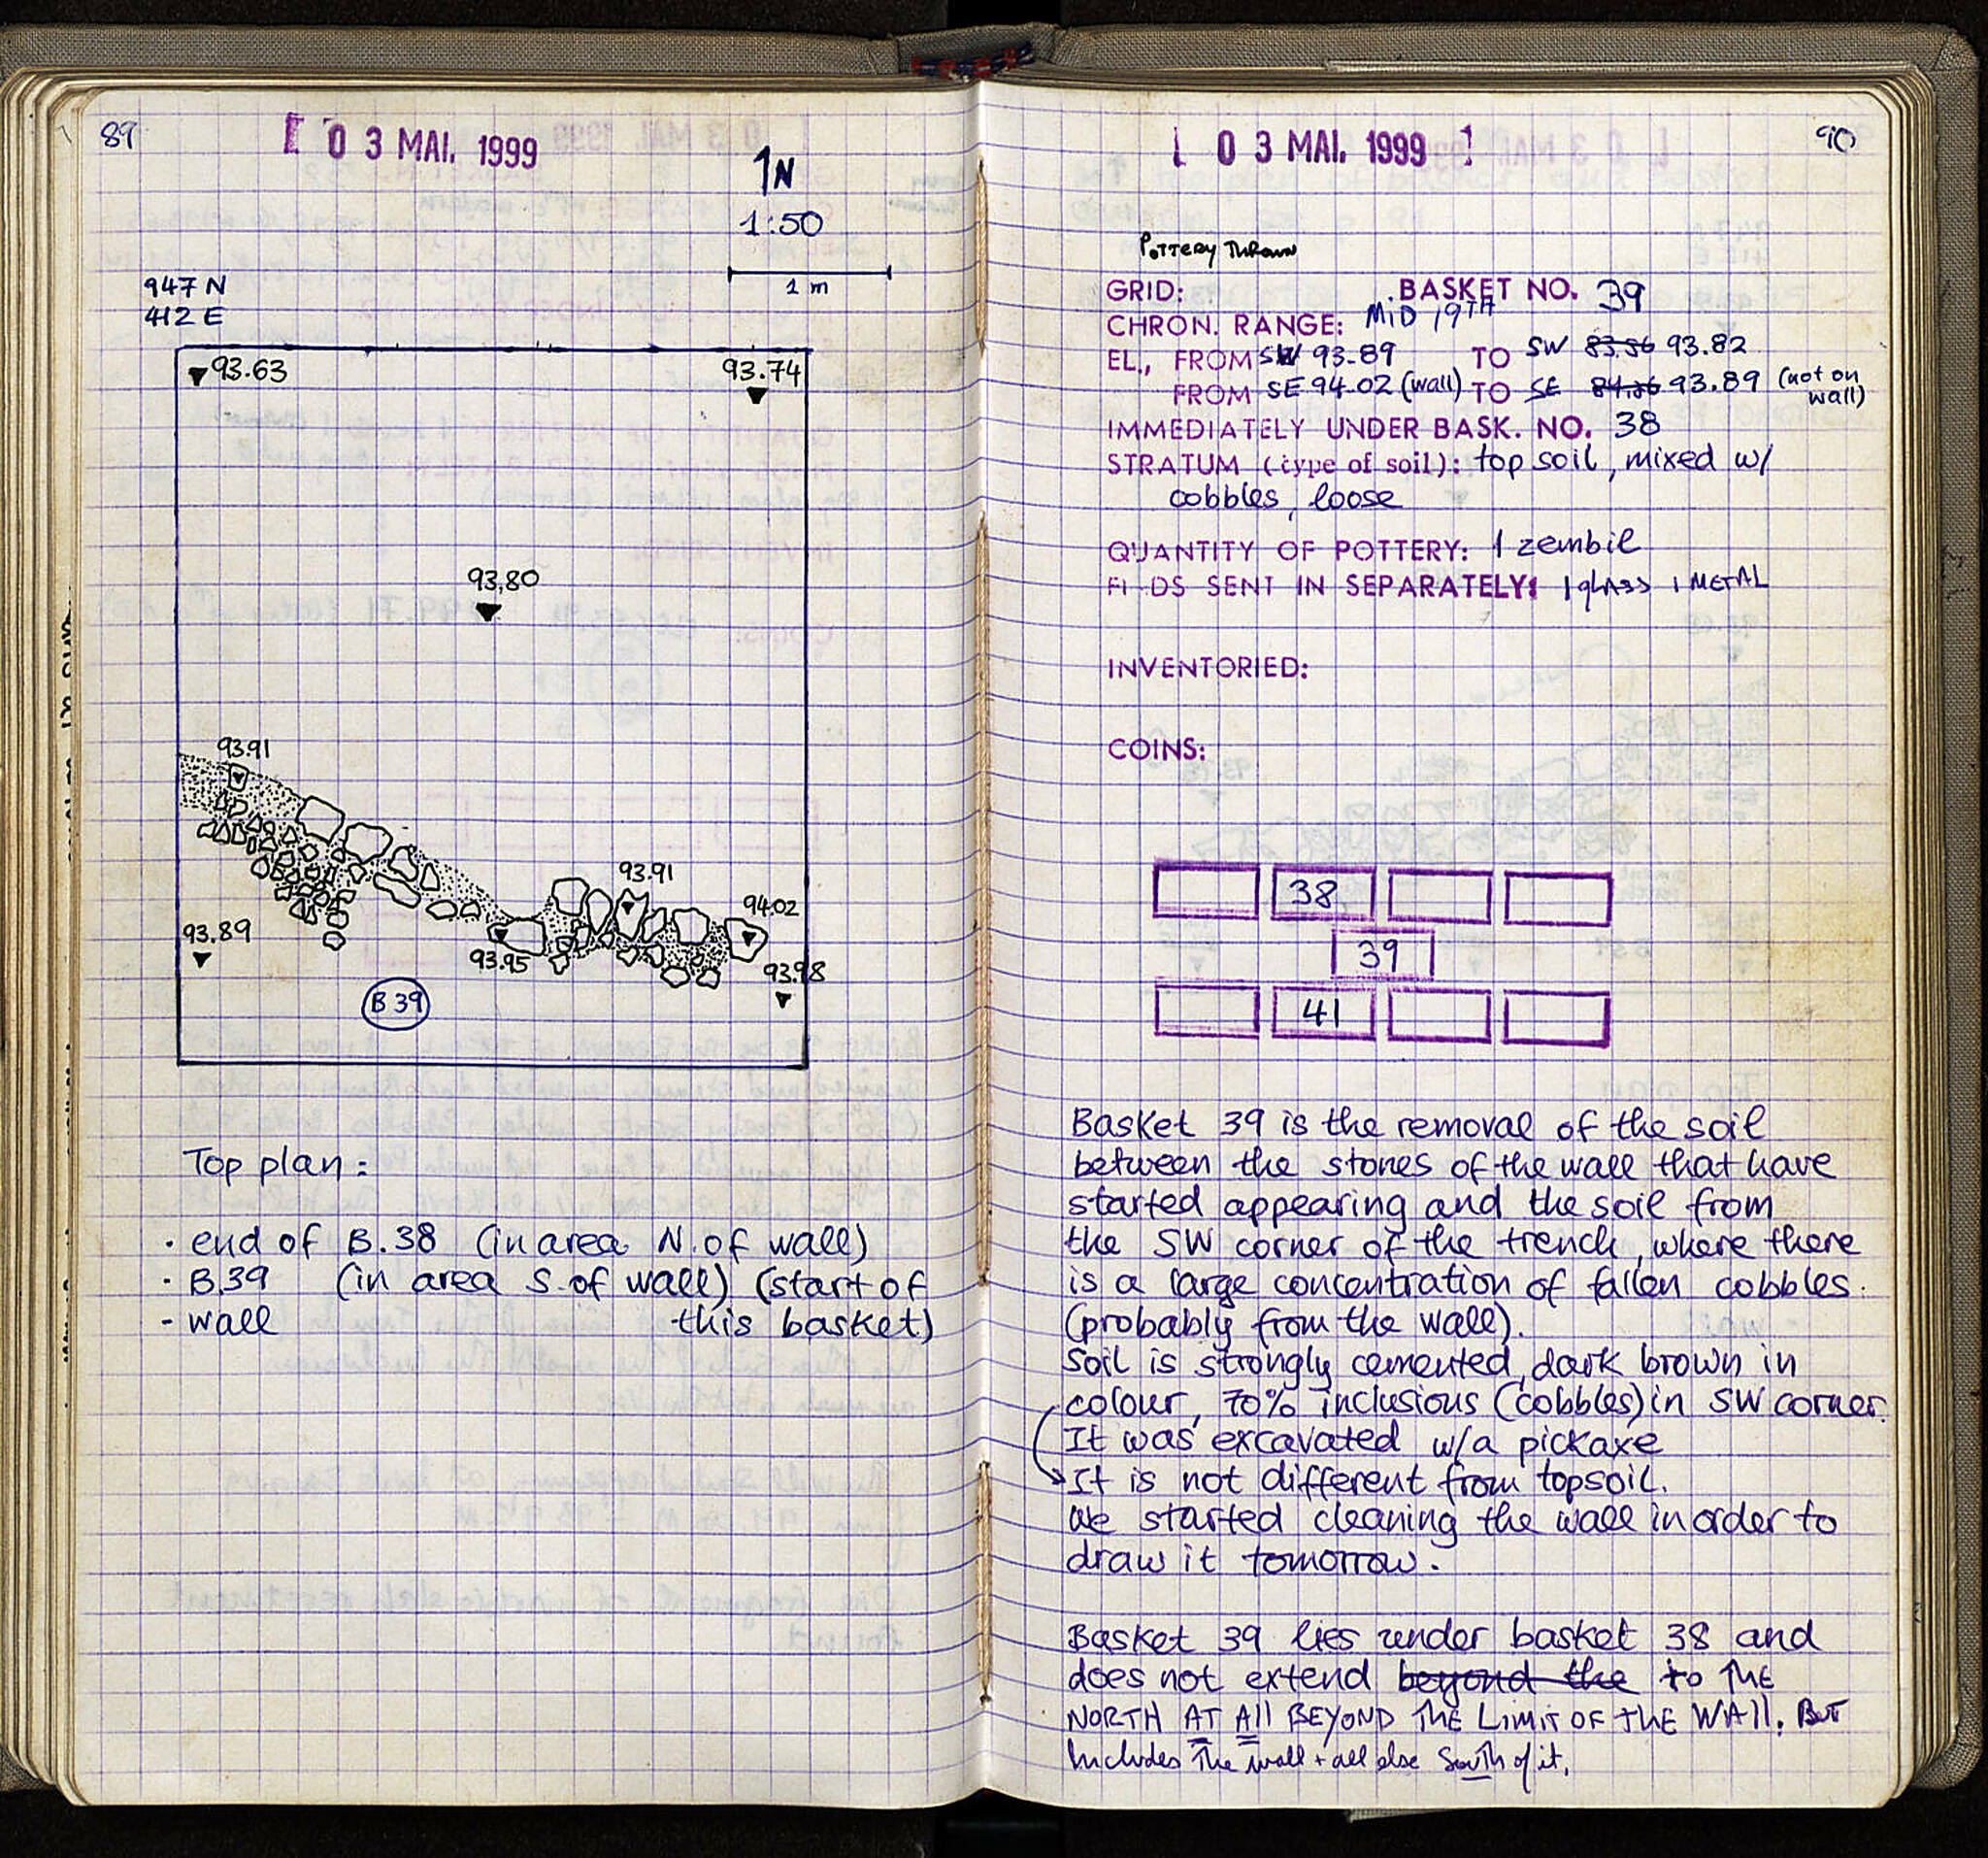 89
[ 03 MAI. 1999
1N
1:50
1 m
947 N
412 E
93.63
93.74
93,80
93.91
93.91
94.02
93.89
93.95
93.98
B 39
Top plan:
· end of B.38 (in area N. of wall)
· B39 (in area S. of wall) (start of
- wall this basket)
[ 03 MAI. 1999 ]
90
Pottery Thrown
GRID: BASKET NO. 39
CHRON. RANGE: MID 19TH
EL., FROM SW 93.89 TO SW 83.86 93.82
FROM SE 94.02 (wall) TO SE 84.86 93.89 (not on
wall)
IMMEDIATELY UNDER BASK. NO. 38
STRATUM (type of soil): top soil, mixed w/
cobbles, loose
QUANTITY OF POTTERY: 1 zembil
FI DS SENT IN SEPARATELY: 1 glass 1 METAL
INVENTORIED:
COINS:
38
39
41
Basket 39 is the removal of the soil
between the stones of the wall that have
started appearing and the soil from
the SW corner of the trench, where there
is a large concentration of fallen cobbles.
(probably from the wall).
Soil is strongly cemented, dark brown in
colour, 70% inclusious (cobbles) in SW corner.
It was excavated w/a pickaxe
It is not different from topsoil.
We started cleaning the wall in order to
draw it tomorrow.
Basket 39 lies under basket 38 and
does not extend beyond the to THE
NORTH AT All BEYOND THE LIMIT OF THE WAll. But
Includes The wall + all else South of it.